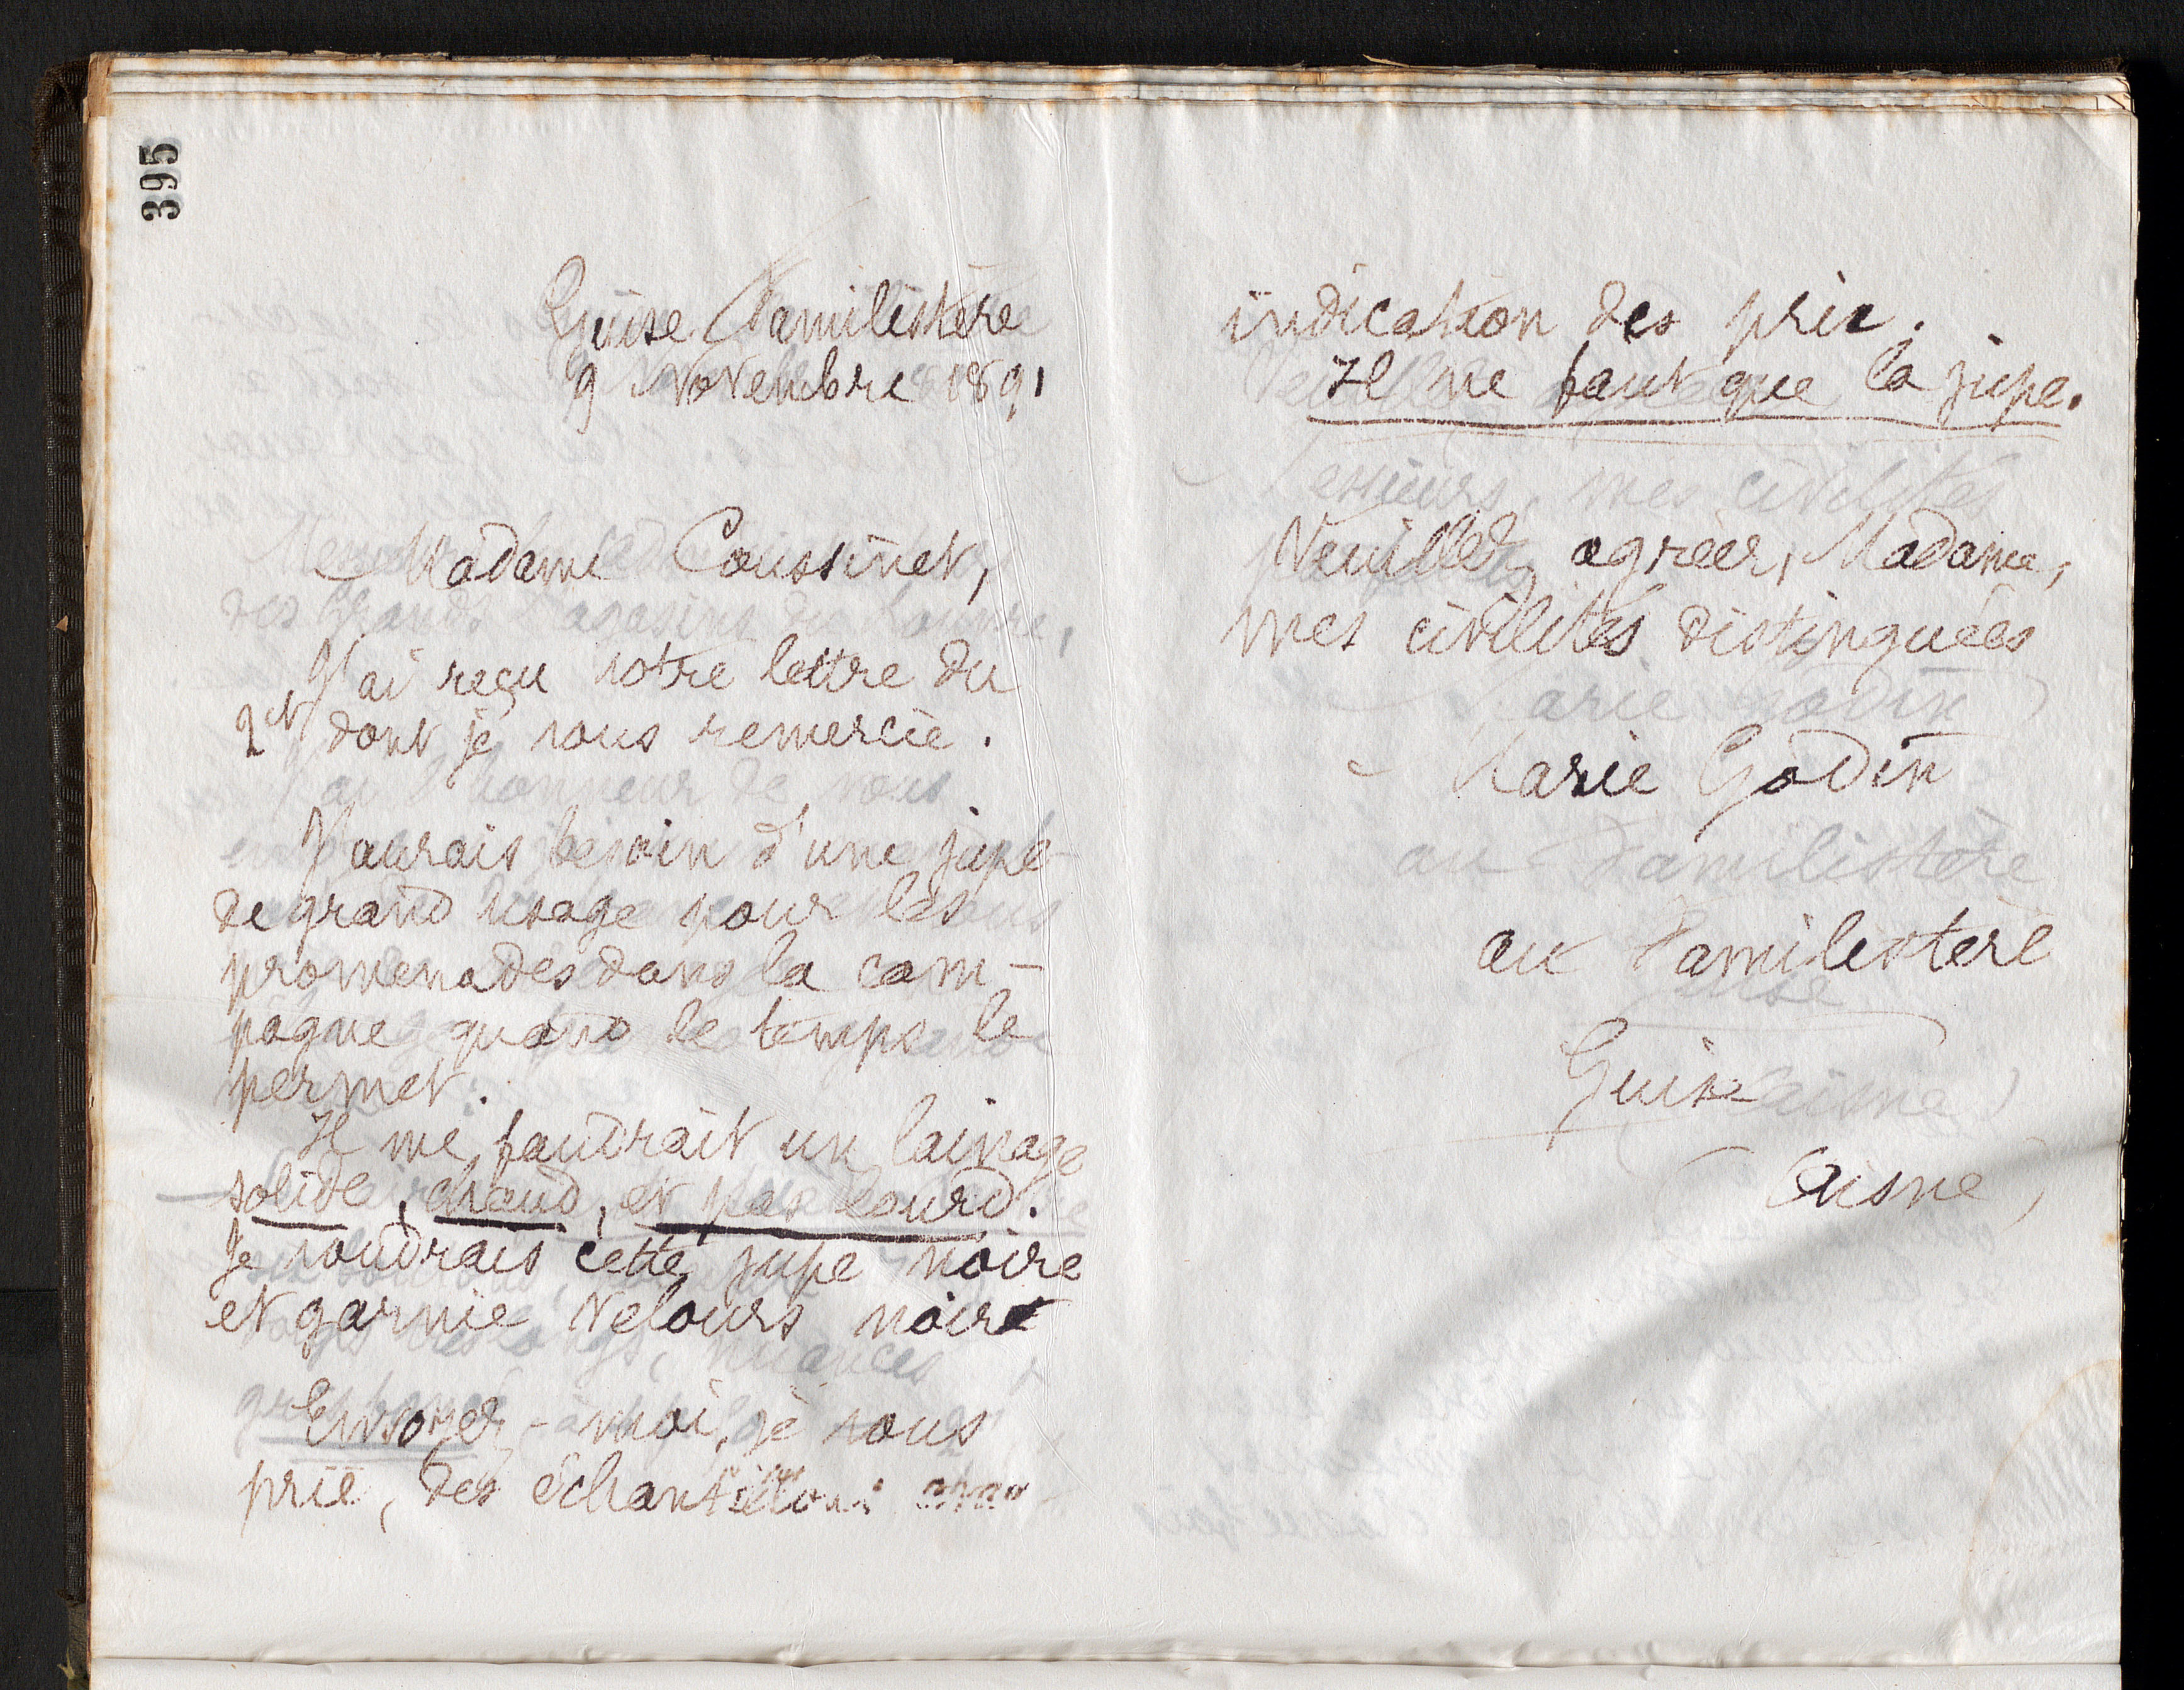 395
Guise Familistère
9 Novembre 1891
Madame Coussinet,
J'ai reçu votre lettre du
2 ct dont je vous remercie.
J'aurais besoin d'une jupe
de grand usage pour les
promenades dans la cam-
pagne quand le temps le
permet.
Il me faudrait un lainage
solide, chaud, et pas lourd.
Je voudrais cette jupe noire
et garnie velours noir
Envoyez-moi, je vous
prie, des échantillons
indication des prix.
Il ne faut que la jupe.
Veuillez agréer, Madame,
mes civilités distinguées
Marie Godin
au Familistère
Guise
Aisne)